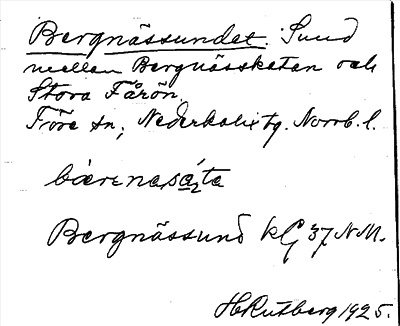 Bergnässundet. Sund
mellan Bergnässkatan och
Stora Fårön.
Töre sn, Nederkalix tg. Norrb. l.
Bergnässund kG 37 N.M.
H Rutberg 1925.